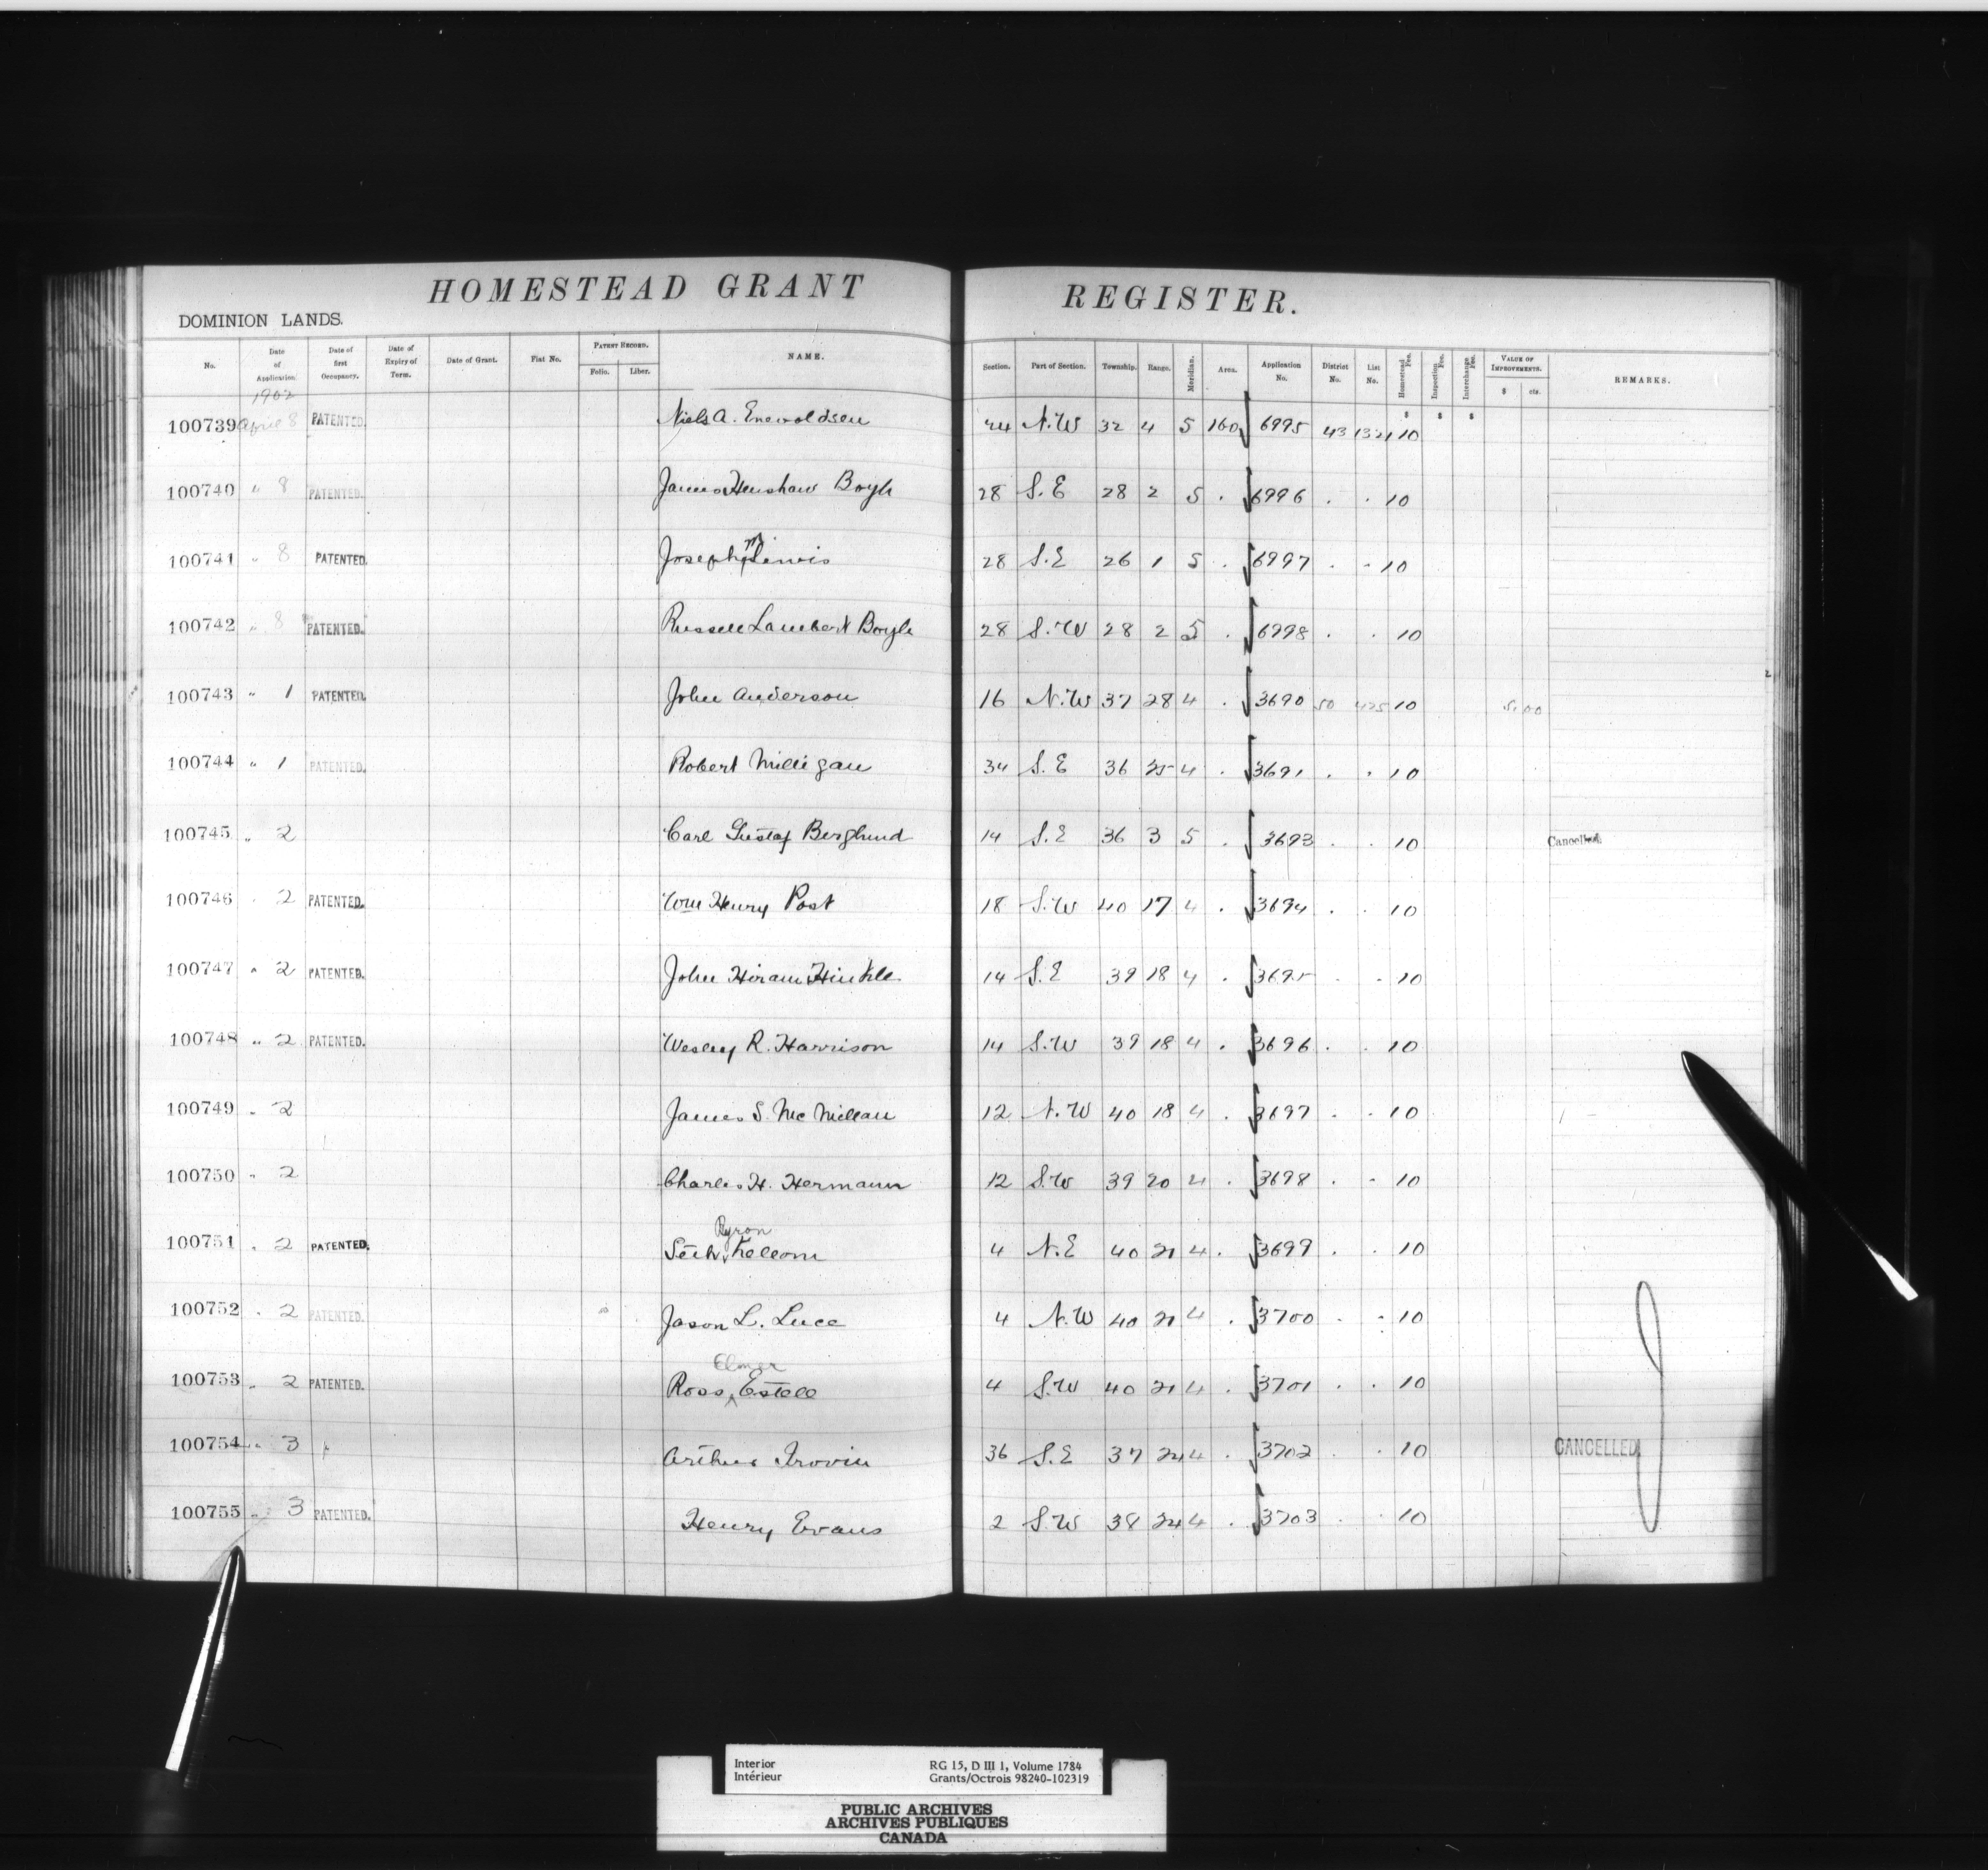 HOMESTEAD GRANT REGISTER.
DOMINION LANDS.
No. Date of Application Date of first Occupancy. Date of Expiry of Term. Date of Grant. Fiat No. PATENT RECORD. Folio. Liber. NAME. Section. Part of Section. Township. Range. Meridian. Area. Application No. District No. List No. Homestead Fee. Inspection Fee. Interchange Fee. VALUE OF IMPROVEMENTS. $ cts. REMARKS.
1902
100739 April 8 PATENTED. Niels A. Enevoldsen 24 N.W 32 4 5 160 6995 43 1321 $ 10 $ $
100740 " 8 PATENTED. James Henshaw Boyle 28 S.E 28 2 5 . 6996 . . 10
100741 " 8 PATENTED. Joseph M Lewis 28 S.E 26 1 5 . 6997 . . 10
100742 " 8 PATENTED. Russell Lambert Boyle 28 S.W 28 2 5 . 6998 . . 10
100743 " 1 PATENTED. John Anderson 16 N.W 37 28 4 . 3690 50 425 10 5.00
100744 " 1 PATENTED. Robert Milligan 34 S.E 36 25 4 . 3691 . . 10
100745 " 2 Carl Gustaf Berglund 14 S.E 36 3 5 . 3693 . . 10 Cancelled.
100746 " 2 PATENTED. Wm Henry Post 18 S.W 40 17 4 . 3694 . . 10
100747 " 2 PATENTED. John Hiram Hinkle 14 S.E 39 18 4 . 3695 . . 10
100748 " 2 PATENTED. Wesley R. Harrison 14 S.W 39 18 4 . 3696 . . 10
100749 " 2 James S. McMillan 12 N.W 40 18 4 . 3697 . . 10
100750 " 2 Charles H. Hermann 12 S.W 39 20 4 . 3698 . . 10
Byron
100751 " 2 PATENTED. Seth Kellom 4 N.E 40 21 4 . 3699 . . 10
100752 " 2 PATENTED. Jason L. Luce 4 N.W 40 21 4 . 3700 . . 10
Elmer
100753 " 2 PATENTED. Ross Estell 4 S.W 40 21 4 . 3701 . . 10
100754 " 3 Arthur Irovin 36 S.E 37 24 4 . 3702 . . 10 CANCELLED
100755 " 3 PATENTED. Henry Evans 2 S.W 38 24 4 . 3703 . . 10
Interior RG 15, D III 1, Volume 1784
Intérieur Grants/Octrois 98240-102319
PUBLIC ARCHIVES
ARCHIVES PUBLIQUES
CANADA